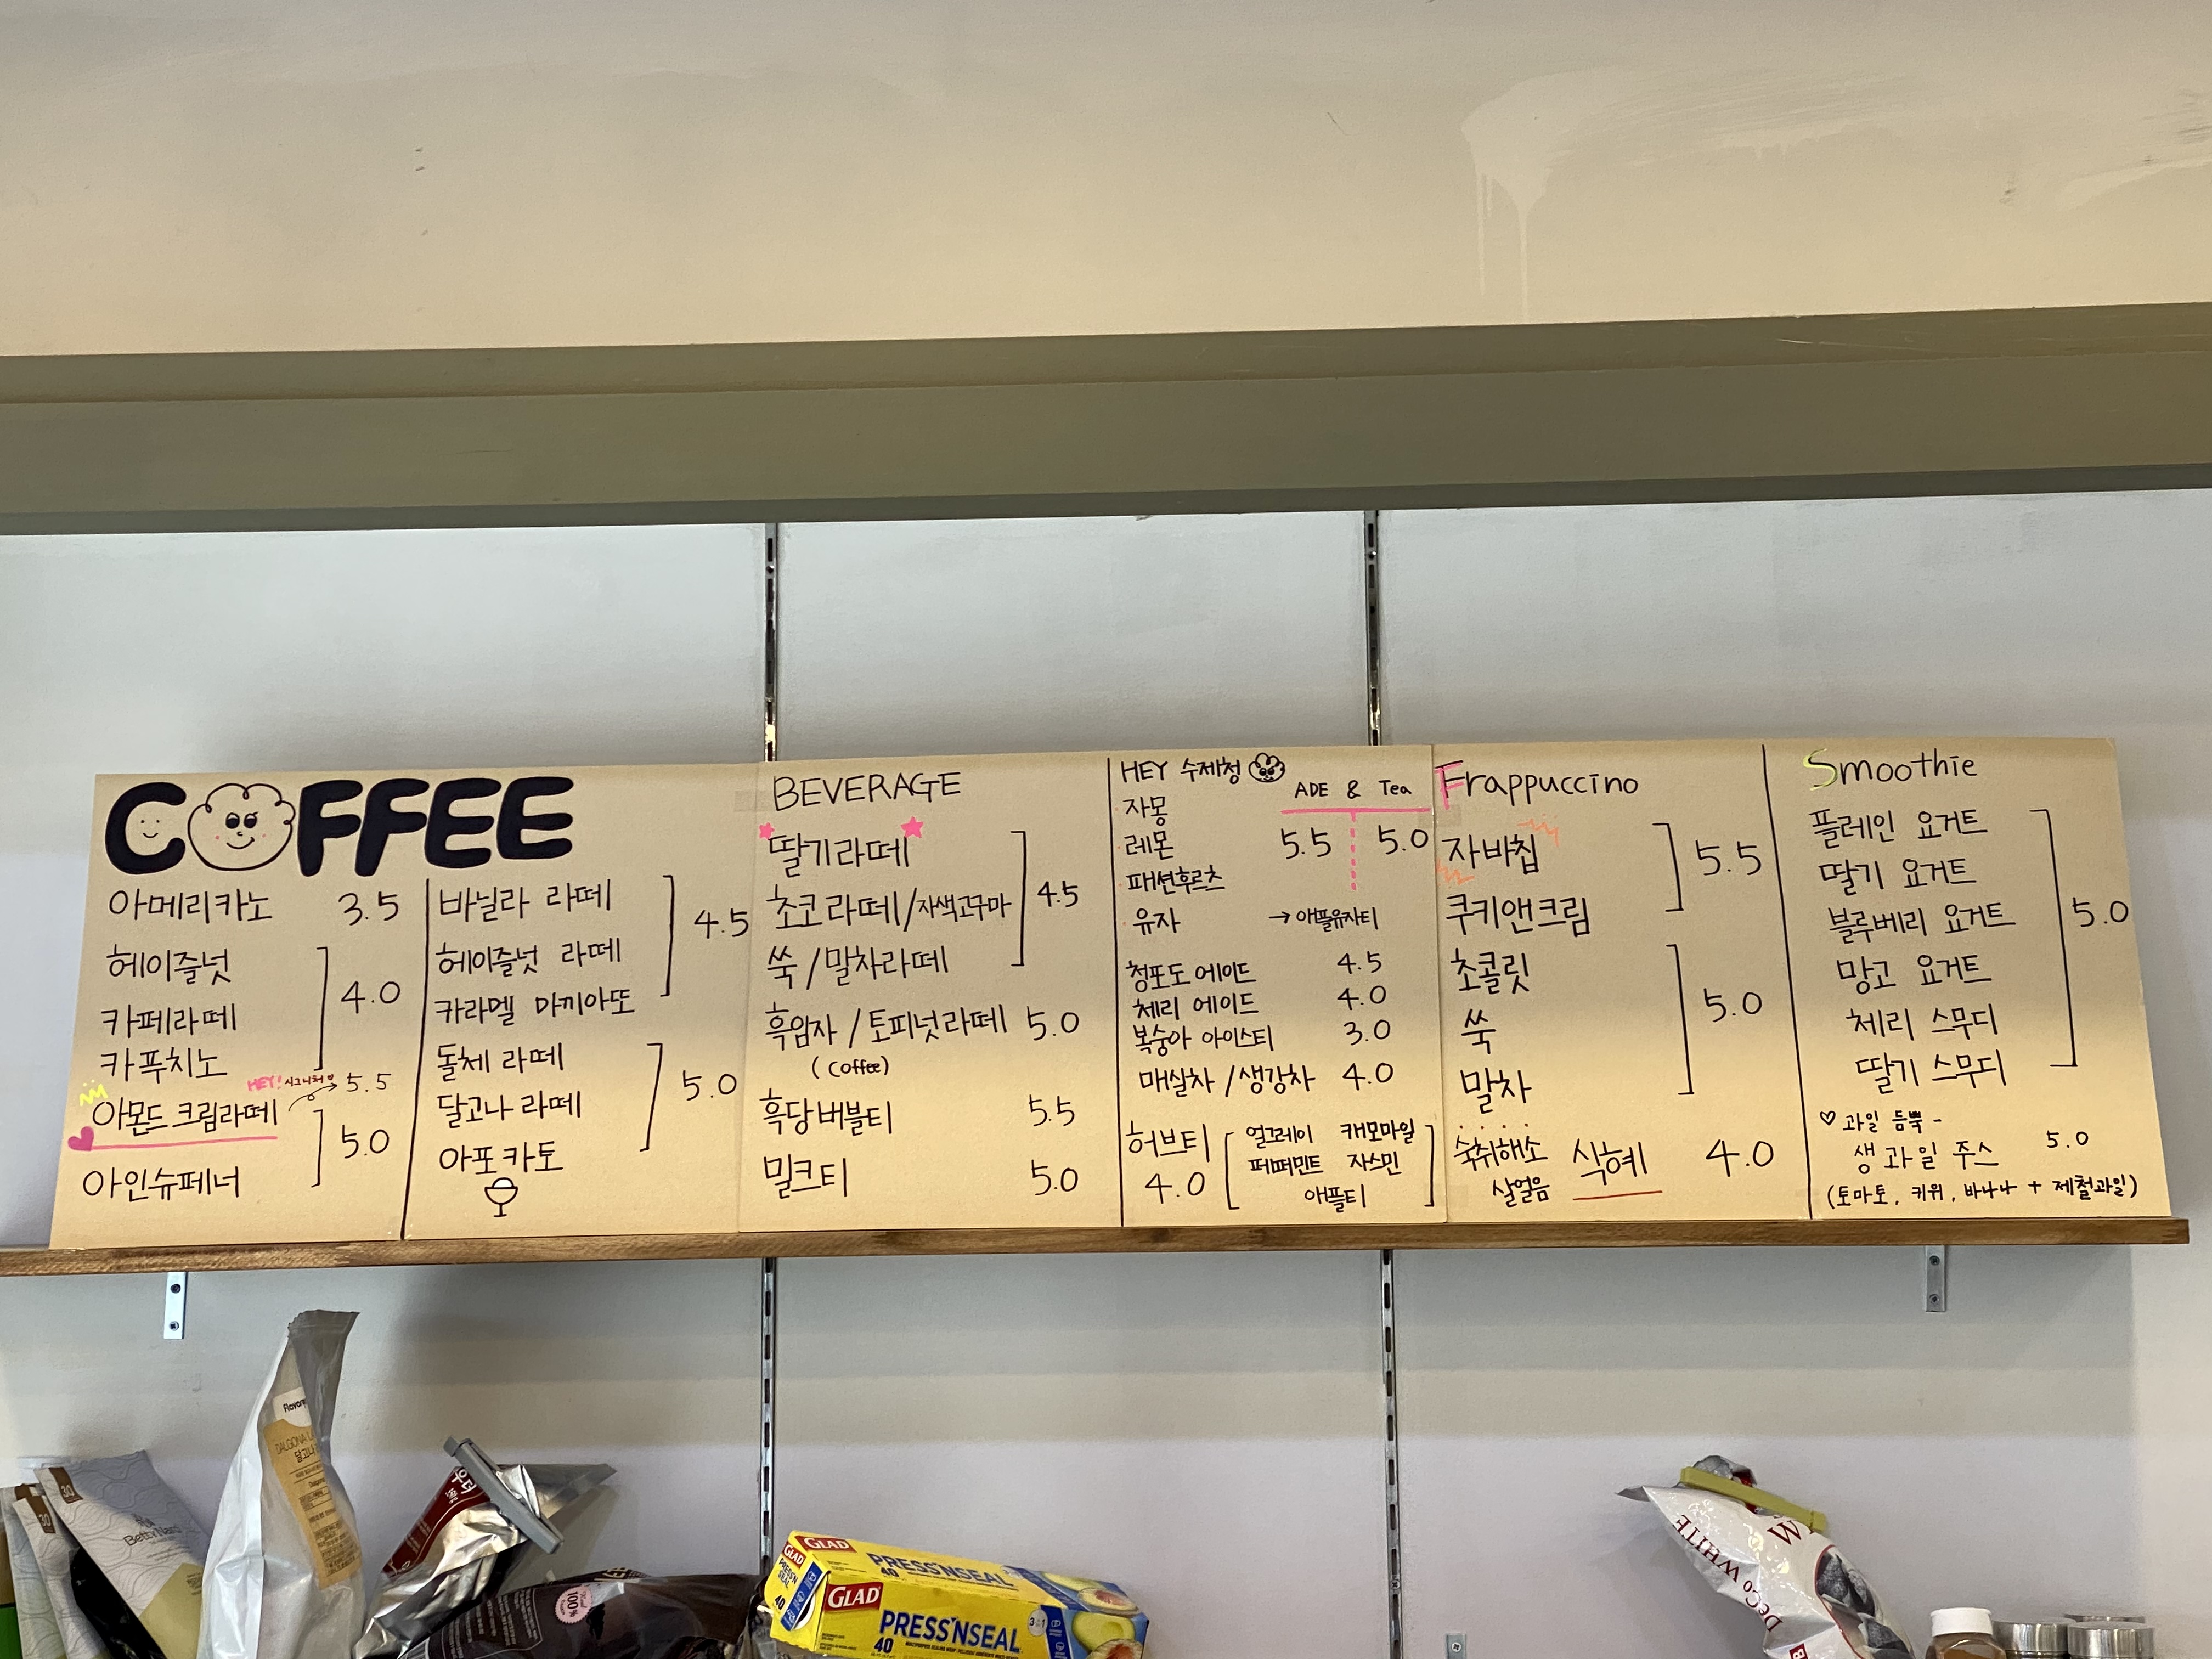 COFFEE
아메리카노 3.5
헤이즐넛
카페라떼 4.0
카푸치노
HEY! 시그니처♡ 5.5
아몬드 크림라떼
5.0
아인슈페너
바닐라 라떼
헤이즐넛 라떼 4.5
카라멜 마끼아또
돌체 라떼
달고나 라떼 5.0
아포카토
BEVERAGE
딸기라떼
초코라떼/자색고구마 4.5
쑥/말차라떼
흑임자/토피넛라떼 5.0
(coffee)
흑당버블티 5.5
밀크티 5.0
HEY 수제청
ADE & Tea
자몽
레몬 5.5 5.0
패션후르츠
유자 → 애플유자티
청포도 에이드 4.5
체리 에이드 4.0
복숭아 아이스티 3.0
매실차/생강차 4.0
허브티 4.0
얼그레이 캐모마일
페퍼민트 자스민
애플티
Frappuccino
자바칩 5.5
쿠키앤크림
초콜릿
쑥 5.0
말차
숙취해소
살얼음 식혜 4.0
Smoothie
플레인 요거트
딸기 요거트
블루베리 요거트 5.0
망고 요거트
체리 스무디
딸기 스무디
♡ 과일 듬뿍 -
생과일 주스 5.0
(토마토, 키위, 바나나 + 제철과일)
30
30
달고나
100%
GLAD
PRESS'N SEAL
40
GLAD
PRESS'N SEAL
40
GLAD
PRESS'N SEAL
40
3in1
DeCo WHITE